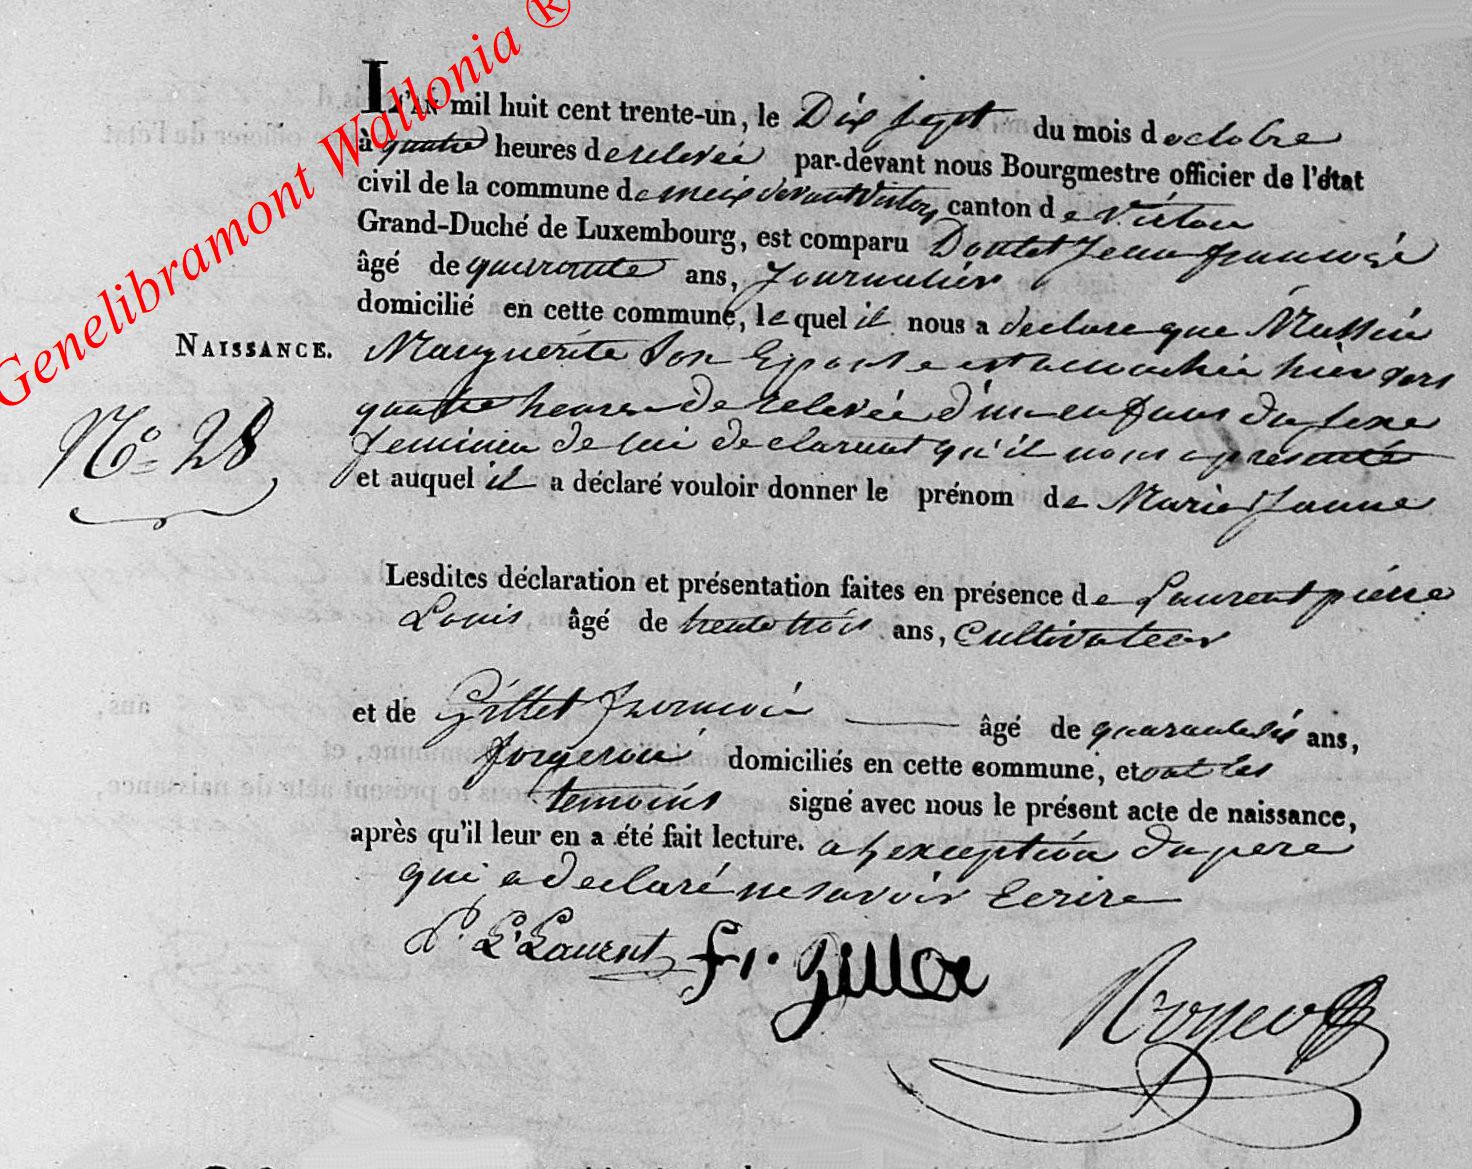 Genelibramont Wallonia ®
L'AN mil huit cent trente-un, le Dix sept du mois d octobre
à quatre heures de relevée par-devant nous Bourgmestre officier de l'état
civil de la commune de meix devant Virton canton de Virton
Grand-Duché de Luxembourg, est comparu Doutet Jean françois
âgé de quarante ans, Journalier
domicilié en cette commune, le quel il nous a declare que Massin
NAISSANCE. Marguerite son Epouse est accouchée hier vers
quatre heures de relevée d'un enfant du sexe
N° 28 feminin de lui declarant qu'il nous a présenté
et auquel il a déclaré vouloir donner le prénom de Marie Janne
Lesdites déclaration et présentation faites en présence de Laurent pierre
Louis âgé de trente trois ans, Cultivateur
et de Gillet François âgé de quarante six ans,
forgeron domiciliés en cette commune, et ont les
temoins signé avec nous le présent acte de naissance,
après qu'il leur en a été fait lecture. a l'exception du pere
qui a declaré ne savoir Ecrire
P. L. Laurent fr. Gillet